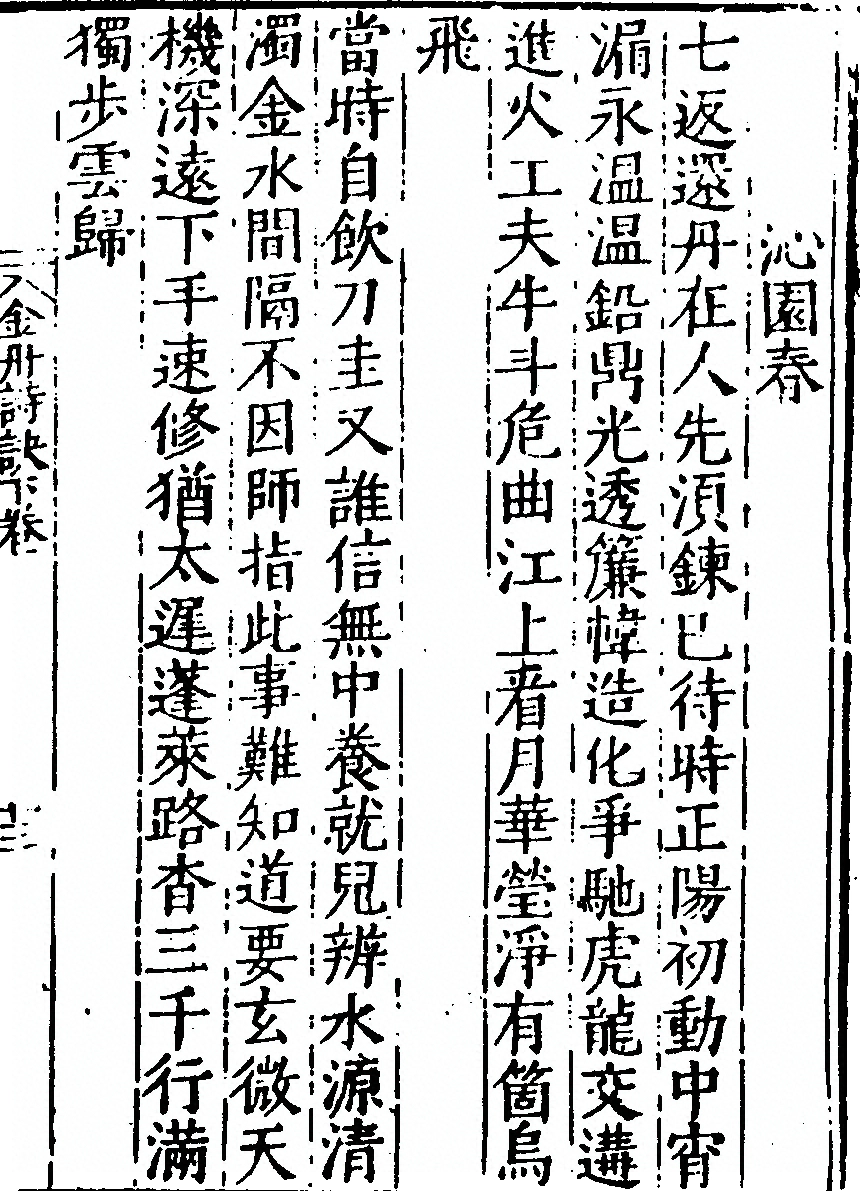 沁園春
七返還丹在人先湏鍊已待時正陽初動中宵
漏永温温鉛鼎光透簾幃造化爭馳虎龍交遘
進火工夫牛斗危曲江上看月華瑩淨有箇烏
飛
當時自飲刀圭又誰信無中養就兒辨水源清
濁金水間隔不因師指此事難知道要玄微天
機深遠下手速修猶太遲蓬萊路杳三千行滿
獨步雲歸
金丹詩訣下卷